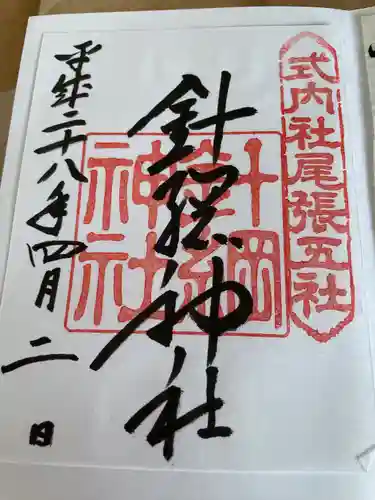 式内社尾張五社
針綱神社
針綱
神社
平成二十八年四月二日